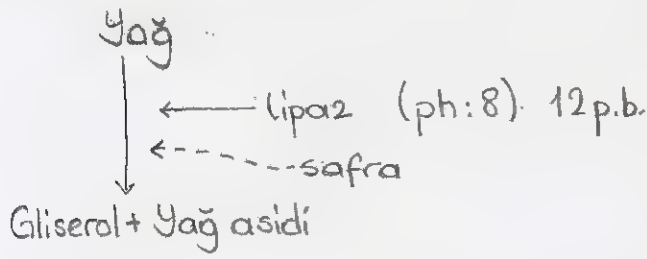 Yağ
lipaz (ph:8). 12 p.b.
safra
Gliserol + Yağ asidi